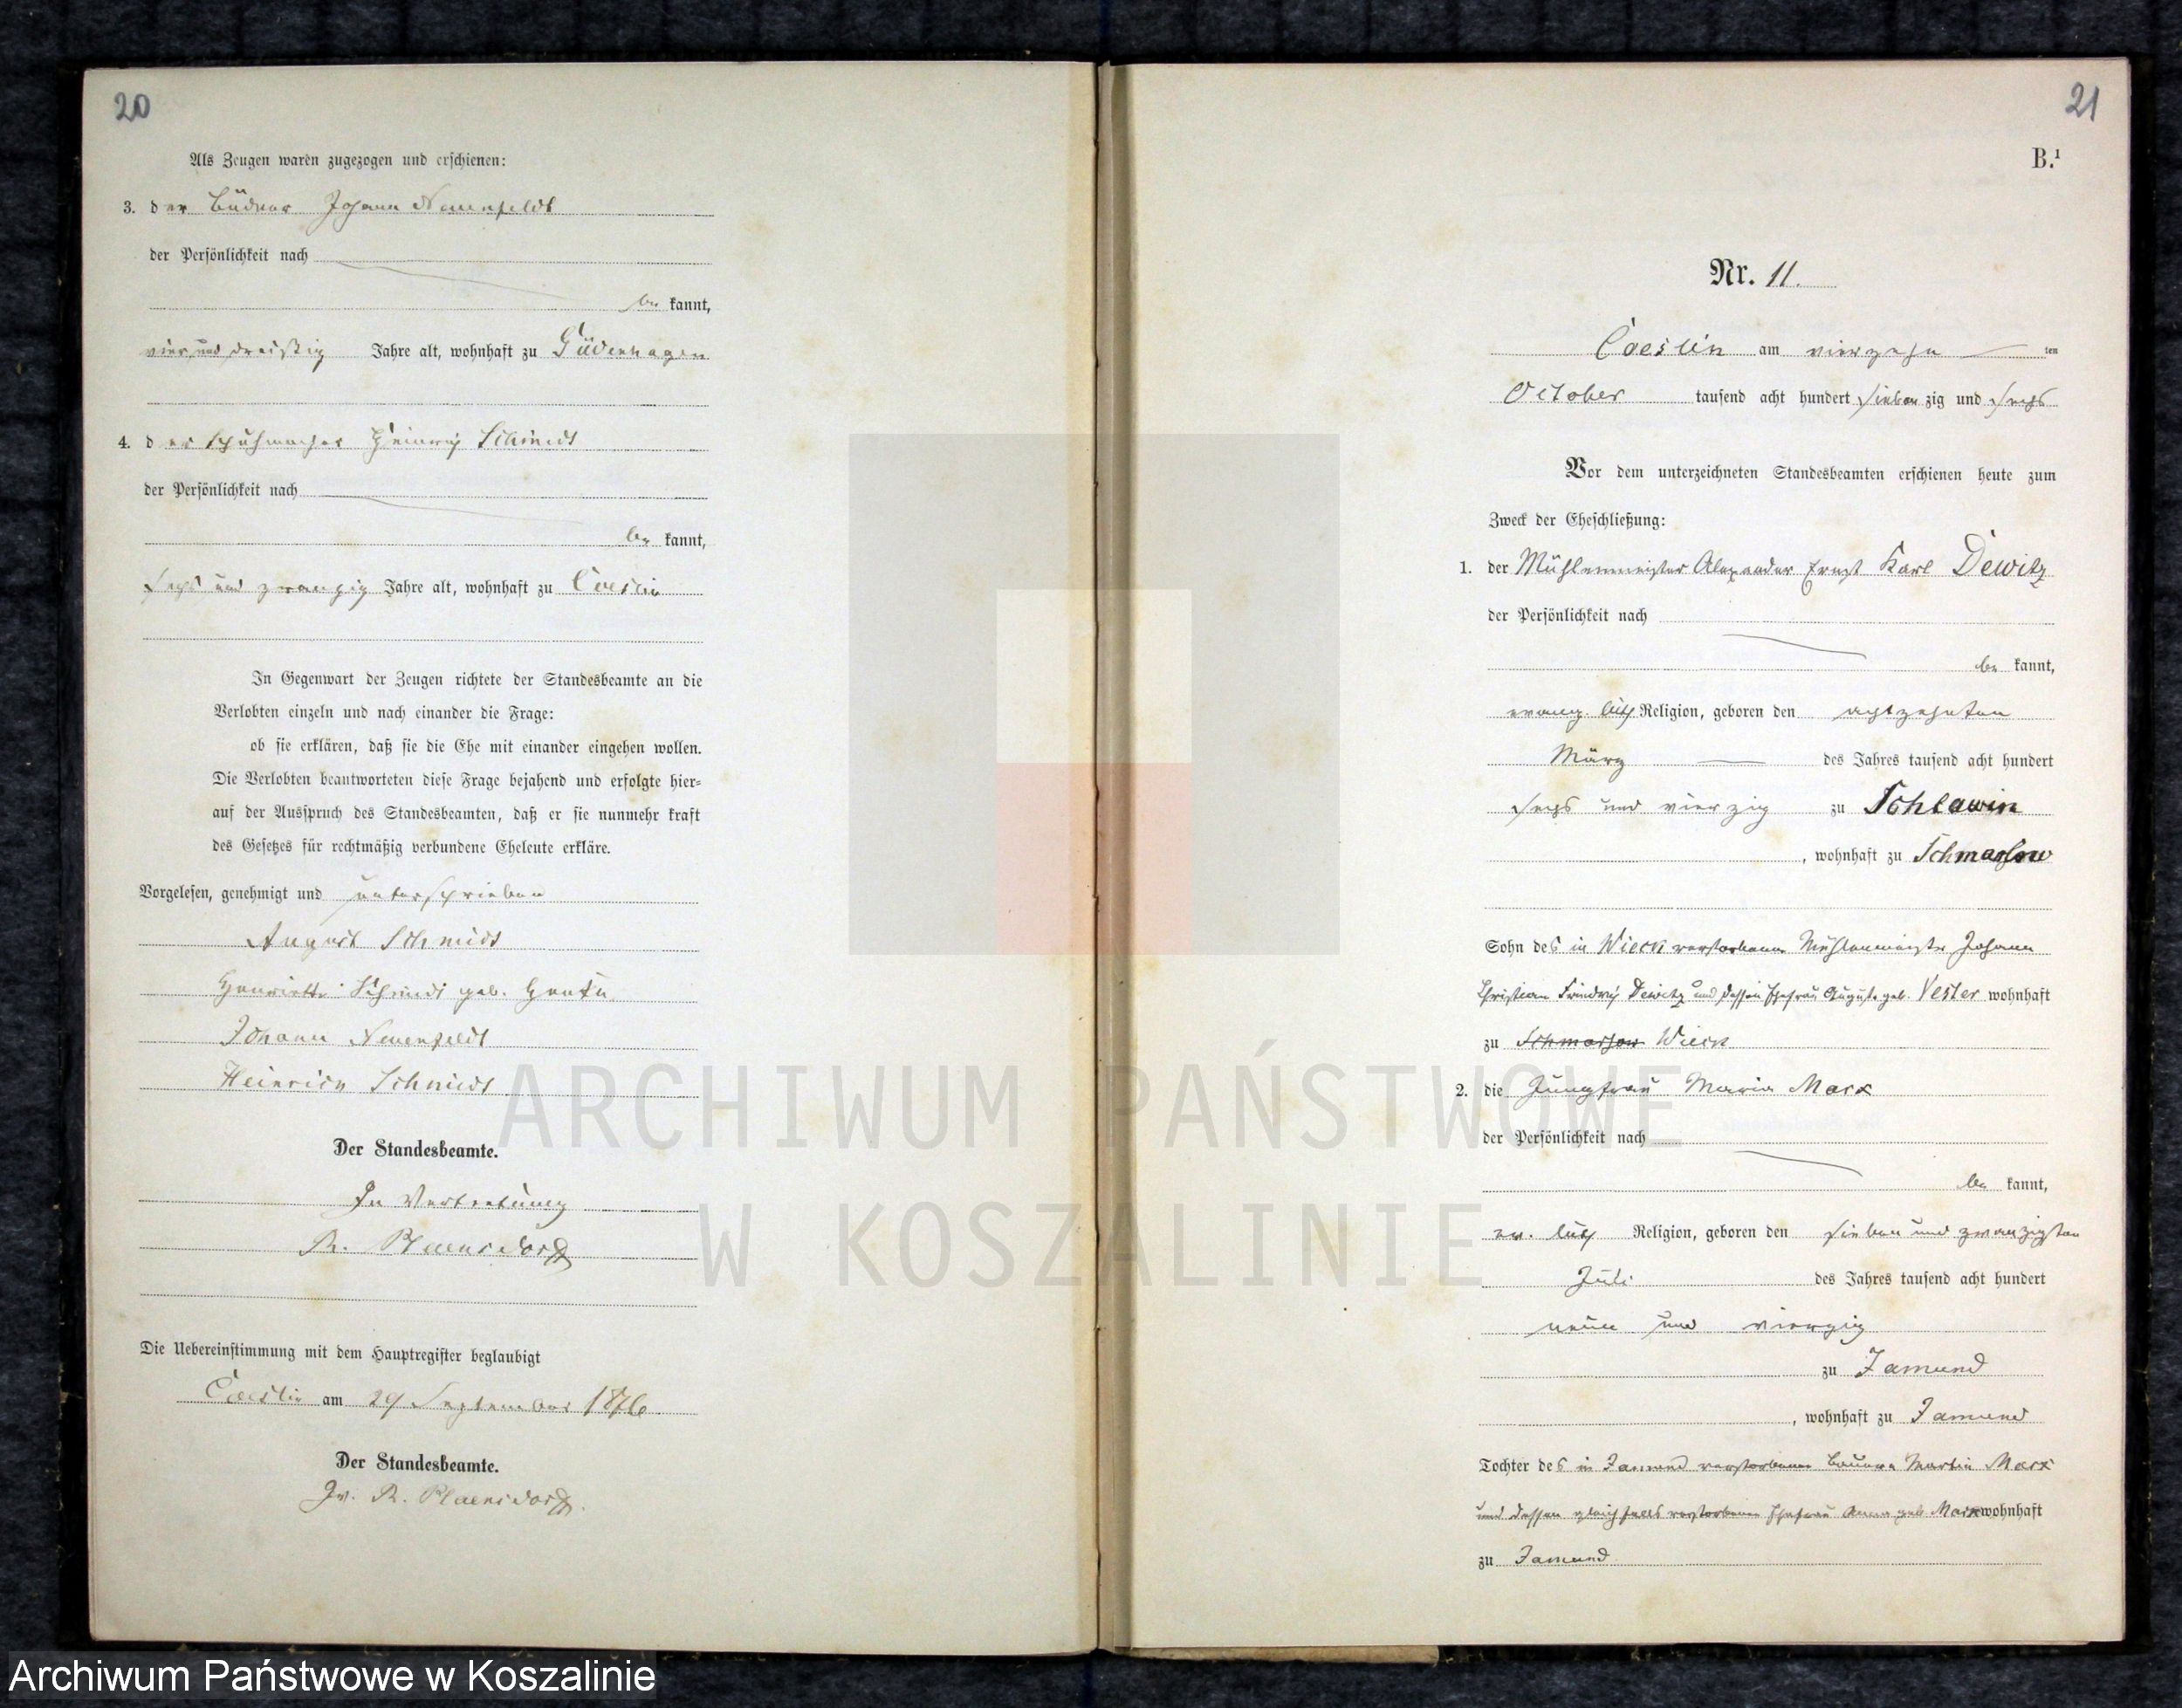 20
Als Zeugen waren zugezogen und erschienen:
3. der Büdner Johann Neuenfeldt
der Persönlichkeit nach
be kannt,
vier und dreißig Jahre alt, wohnhaft zu Güdenhagen
4. der Schuhmacher Heinrich Schmidt
der Persönlichkeit nach
be kannt,
sechs und zwanzig Jahre alt, wohnhaft zu Coeslin
In Gegenwart der Zeugen richtete der Standesbeamte an die
Verlobten einzeln und nach einander die Frage:
ob sie erklären, daß sie die Ehe mit einander eingehen wollen.
Die Verlobten beantworteten diese Frage bejahend und erfolgte hier-
auf der Ausspruch des Standesbeamten, daß er sie nunmehr kraft
des Gesetzes für rechtmäßig verbundene Eheleute erkläre.
Vorgelesen, genehmigt und unterschrieben
August Schmidt
Henriette Schmidt geb.
Johann Neuenfeldt
Heinrich Schmidt
Der Standesbeamte.
In Vertretung
R.
Die Uebereinstimmung mit dem Hauptregister beglaubigt
Coeslin am 29 September 1876
Der Standesbeamte.
Iv. R.
21
B.¹
Nr. 11.
Coeslin am vierzehn ten
October tausend acht hundert sieben zig und sechs
Vor dem unterzeichneten Standesbeamten erschienen heute zum
Zweck der Eheschließung:
1. der Mühlenmeister Alexander Ernst Karl Dewitz
der Persönlichkeit nach
be kannt,
evang. luth Religion, geboren den achtzehnten
März des Jahres tausend acht hundert
sechs und vierzig zu Schlawin
, wohnhaft zu Schmarsow
Sohn des in Wieck verstorbenen Mühlenmeister Johann
Christian Friedrich Dewitz und dessen Ehefrau Auguste geb. Vester wohnhaft
zu Schmarsow Wieck
2. die Jungfrau Maria Marx
der Persönlichkeit nach
be kannt,
ev. luth Religion, geboren den sieben und zwanzigsten
Juli des Jahres tausend acht hundert
neun und vierzig
zu Jamund
, wohnhaft zu Jamund
Tochter des in Jamund verstorbenen Bauern Martin Marx
und dessen gleichfalls verstorbenen Ehefrau Anna geb Marx wohnhaft
zu Jamund
ARCHIWUM PAŃSTWOWE
W KOSZALINIE
Archiwum Państwowe w Koszalinie